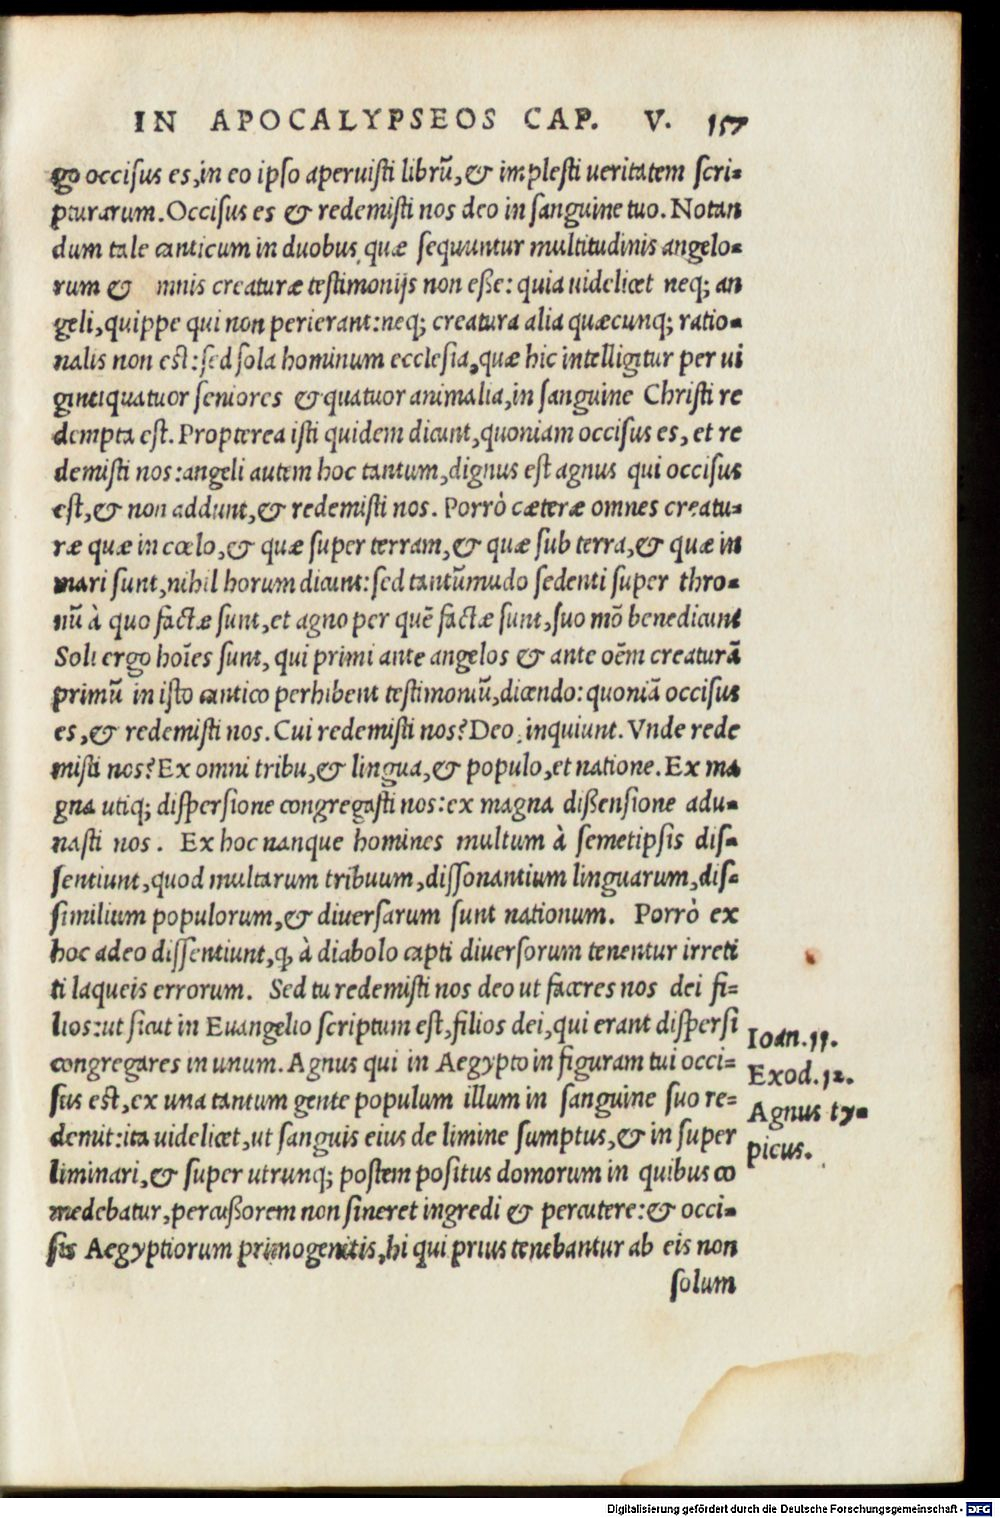 IN APOCALYPSEOS CAP. V. 157
go occisus es, in eo ipso aperuisti librũ, & implesti ueritatem scri-
pturarum. Occisus es & redemisti nos deo in sanguine tuo. Notan
dum tale canticum in duobus quæ sequuntur multitudinis angelo-
rum & mnis creaturæ testimonijs non eße: quia uidelicet neq; an
geli, quippe qui non perierant: neq; creatura alia quæcunq; ratio-
nalis non est: sed sola hominum ecclesia, quæ hic intelligitur per ui
gintiquatuor seniores & quatuor animalia, in sanguine Christi re
dempta est. Propterea isti quidem dicunt, quoniam occisus es, et re
demisti nos: angeli autem hoc tantum, dignus est agnus qui occisus
est, & non addunt, & redemisti nos. Porrò cæteræ omnes creatu-
ræ quæ in cœlo, & quæ super terram, & quæ sub terra, & quæ in
mari sunt, nihil horum dicunt: sed tantũmodo sedenti super thro-
nũ à quo factæ sunt, et agno per quẽ factæ sunt, suo mõ benedicunt
Soli ergo hoĩes sunt, qui primi ante angelos & ante oẽm creaturã
primũ in isto cantico perhibent testimoniũ, dicendo: quoniã occisus
es, & redemisti nos. Cui redemisti nos? Deo, inquiunt. Vnde rede
misti nos? Ex omni tribu, & lingua, & populo, et natione. Ex ma
gna utiq; dispersione congregasti nos: ex magna dißensione adu-
nasti nos. Ex hoc nanque homines multum à semetipsis dis-
sentiunt, quod multarum tribuum, dissonantium linguarum, dis-
similium populorum, & diuersarum sunt nationum. Porrò ex
hoc adeo dissentiunt, ꝙ à diabolo capti diuersorum tenentur irreti
ti laqueis errorum. Sed tu redemisti nos deo ut faceres nos dei fi-
lios: ut sicut in Euangelio scriptum est, filios dei, qui erant dispersi
congregares in unum. Agnus qui in Aegypto in figuram tui occi-
sus est, ex una tantum gente populum illum in sanguine suo re-
demit: ita uidelicet, ut sanguis eius de limine sumptus, & in super
liminari, & super utrunq; postem positus domorum in quibus co
medebatur, percußorem non sineret ingredi & percutere: & occi-
sis Aegyptiorum primogenitis, hi qui prius tenebantur ab eis non
solum
Ioan. 11.
Exod. 12.
Agnus ty-
picus.
Digitalisierung gefördert durch die Deutsche Forschungsgemeinschaft - DFG